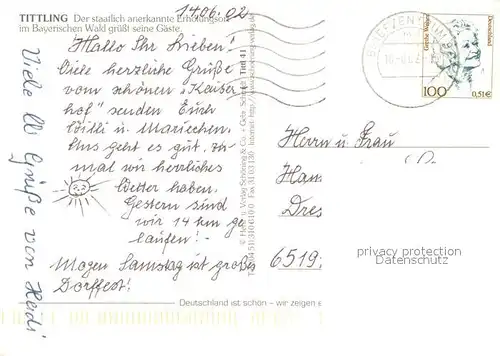 TITTLING Der staatlich anerkannte Erholungsort
im Bayerischen Wald grüßt seine Gäste.
14.06.02
Hallo Ihr Lieben!
Viele herzliche Grüße
vom schönen "Kaiser
hof" senden Euch
Willi u. Mariechen.
Uns geht es gut, zu
mal wir herrliches
Wetter haben.
Gestern sind
wir 14 km ge
laufen! -
Morgen Samstag ist großes
Dorffest!
Viele lb Grüße von Heidi
Verlag Schöning & Co. + Gebr. Schmidt
Tittl 41
BRIEFZENTRUM
Grethe Weiser
Deutschland
100
0,51€
Herrn u. Frau
Han
Dres
6519
privacy protection
Datenschutz
Deutschland ist schön – wir zeigen e